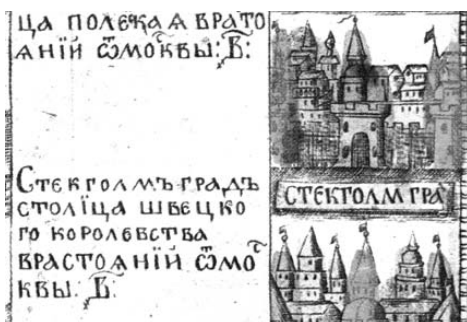 ца полскаѧ врасто
ѧнїи ѿмоквы: в҃:
Стекголмъ градъ
столїца швецко
го королевства
врастоѧнїи ѿмо
квы: в҃:
СТЕКГОЛМ ГРА